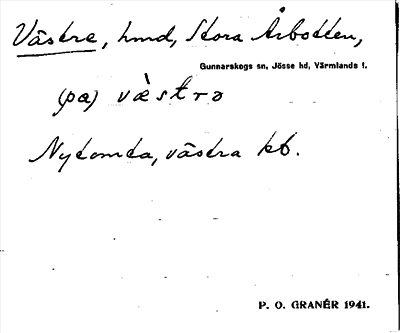 Västra, hmd, Stora Årbotten,
Gunnarskogs sn, Jösse hd, Värmlands l.
(pa) væ̀stra
Nytomta, västra kb.
P. O. GRANÉR 1941.